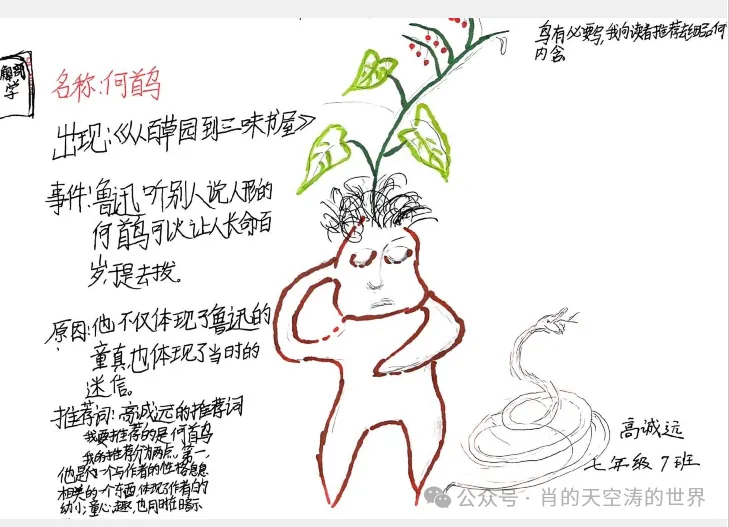 名称:何首乌
出现:《从百草园到三味书屋》
事件:鲁迅听别人说人形的
何首乌可以让人长命百
岁,于是去拔。
原因:他不仅体现了鲁迅的
童真,也体现了当时的
迷信。
推荐词:高诚远的推荐词
我要推荐的是何首乌
我的推荐分为两点,第一,
他是一个与作者的性格息息
相关的一个东西,体现了作者的
幼小童心,趣,也同时暗示
乌有必要写,我向读者推荐去细品何
内含
高诚远
七年级7班
公众号·肖的天空涛的世界